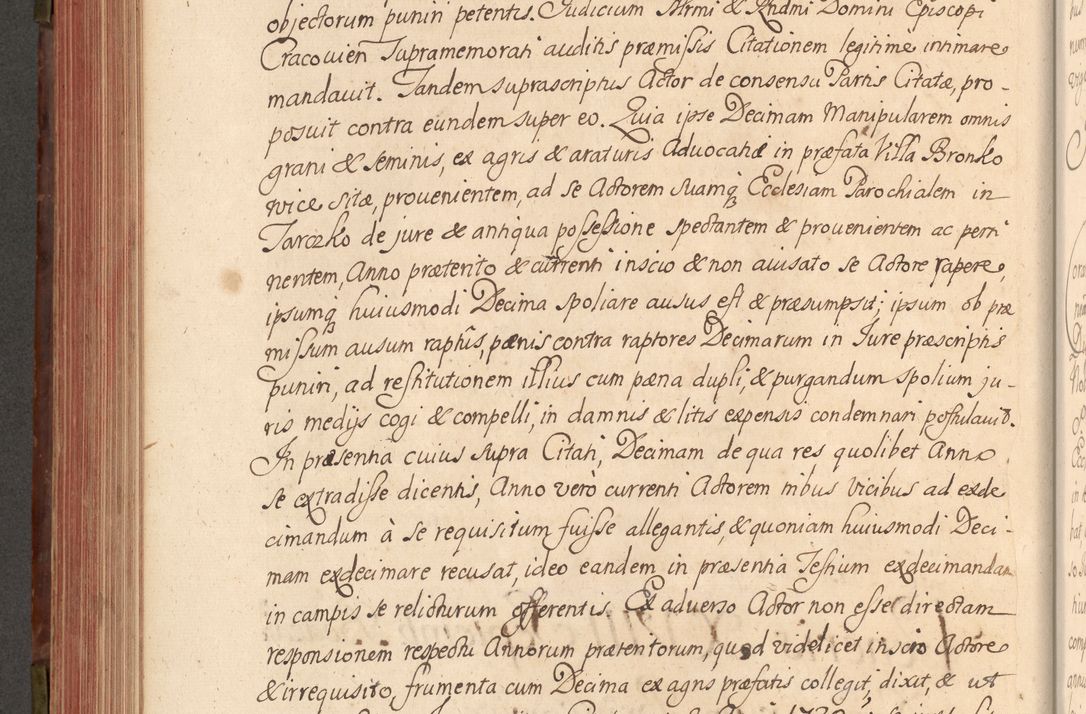 objectorum puniri petentis. Judicium Illrmi & Rndmi Domini Episcopi
Cracovien supramemorati auditis præmissis Citationem legitime intimare
mandavit. Tandem suprascriptus Actor de consensu Partis Citatæ, pro-
posuit contra eundem super eo. Quia ipse Decimam Manipularem omnis
grani & seminis, ex agris & araturis Advocatiæ in præfata Villa Bronko
vice sitæ, provenientem, ad se Actorem suamq Ecclesiam Parochialem in
Tarczko de jure & antiqua possessione spectantem & provenientem ac perti
nentem, Anno præterito & currenti inscio & non avisato se Actore rapere,
ipsumq huiusmodi Decima spoliare ausus est & præsumpsit; ipsum ob præ
missum ausum raptûs, pænis contra raptores Decimarum in Jure præscriptis
puniri, ad restitutionem illius cum pæna dupli, & purgandum spolium ju-
ris medijs cogi & compelli, in damnis & litis expensis condemnari postulavit.
In præsentia cuius supra Citati, Decimam de qua res quolibet Anno
se extradisse dicentis, Anno verò currenti Actorem tribus vicibus ad exde
cimandum à se requisitum fuisse allegantis, & quoniam huiusmodi Deci-
mam exdecimare recusat, ideo eandem in præsentia Testium exdecimandam
in campis se relicturum offerentis. Ex adverso Actor non esse directam
responsionem respectu Annorum præteritorum, quod videlicet inscio Actore
& irrequisito, frumenta cum Decima ex agris præfatis collegit, dixit, & ut